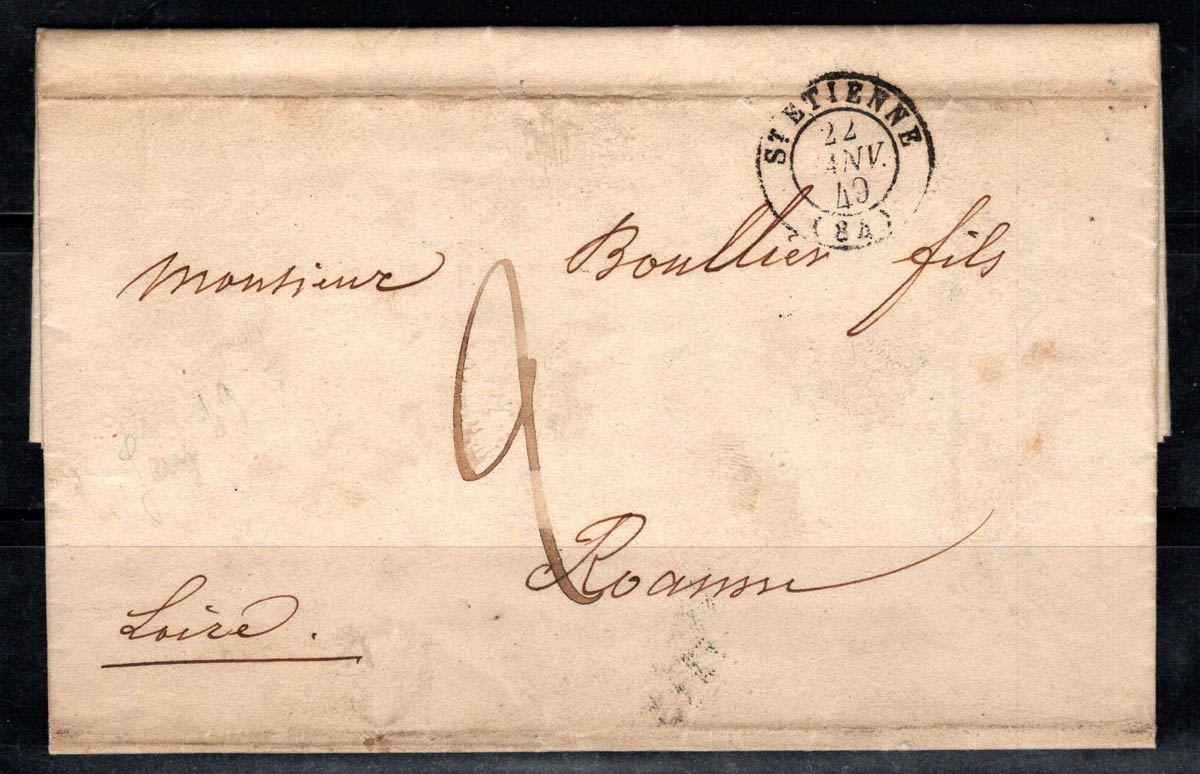 ST ETIENNE
22
JANV.
49
(84)
Monsieur Boullier fils
2
Roanne
Loire.